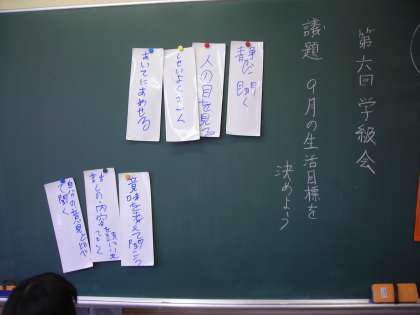 第六回 学級会
議題 9月の生活目標を
決めよう
静かに聞く
人の目を見て
しせいよくきく
あいてにあわせる
意味を考えて聞こう
話しの内容を
自分の意見と比べ
て聞く